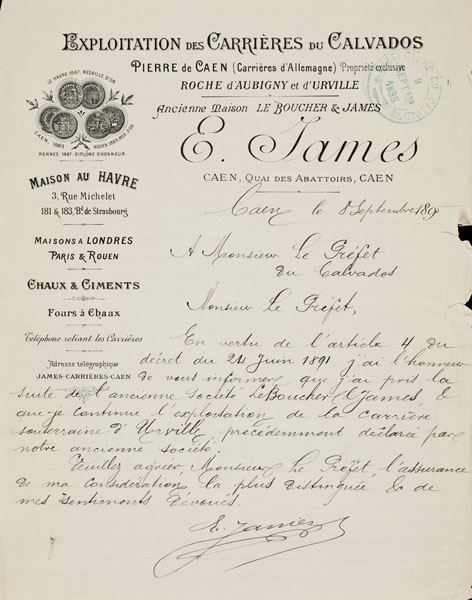 EXPLOITATION DES CARRIÈRES DU CALVADOS
PIERRE de CAEN (Carrières d'Allemagne) Propriété exclusive
ROCHE d'AUBIGNY et d'URVILLE
Ancienne Maison LE BOUCHER & JAMES
E. James
CAEN, QUAI DES ABATTOIRS, CAEN
LE HAVRE 1887, MÉDAILLE D'OR
CAEN 1883
ROUEN 1884 MED. D'OR
RENNES 1887 DIPLÔME D'HONNEUR
MAISON AU HAVRE
3, Rue Michelet
181 & 183, Bd. de Strasbourg
MAISONS A LONDRES
PARIS & ROUEN
CHAUX & CIMENTS
Fours à Chaux
Téléphone reliant les Carrières
Adresse télégraphique
JAMES-CARRIÈRES-CAEN
Caen le 8 Septembre 189
A Monsieur Le Préfet
du Calvados
Monsieur Le Préfet,
En vertu de l'article 4 du
décret du 24 Juin 1891 j'ai l'honneur
de vous informer que j'ai pris la
suite de l'ancienne Société Le Boucher & James, &
que je continue l'exploitation de la carrière
souterraine d'Urville, précédemment déclarée par
notre ancienne société.
Veuillez agréer, Monsieur Le Préfet, l'assurance
de ma considération la plus distinguée & de
mes sentiments dévoués.
E. James